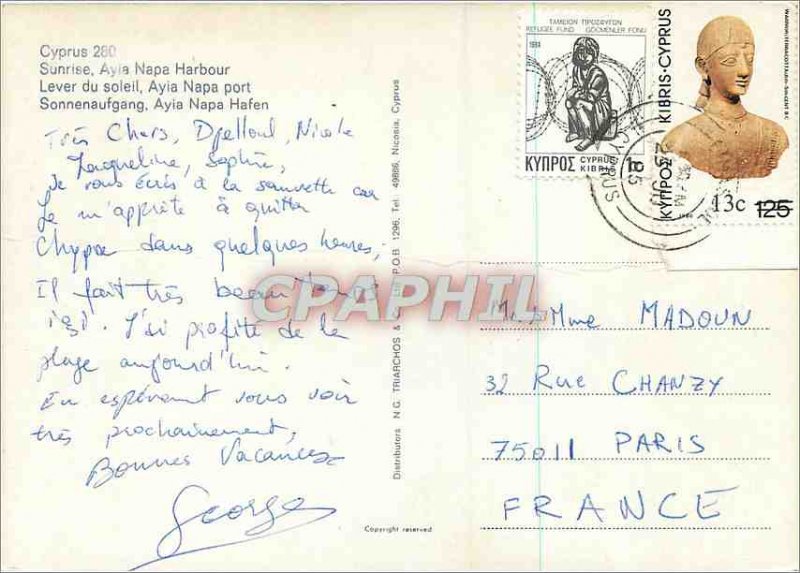 Cyprus 280
Sunrise, Ayia Napa Harbour
Lever du soleil, Ayia Napa port
Sonnenaufgang, Ayia Napa Hafen
Très Chers, Djelloul, Nicole
Jacqueline, Sophie,
Je vous écris à la sauvette car
Je m'apprête à quitter
Chypre dans quelques heures,
Il fait très beau temps
ici. J'ai profité de la
plage aujourd'hui.
En espérant vous voir
très prochainement,
Bonnes Vacances
George
Distributors N.G. TRIARCHOS & P.O.B. 1296, Tel. 49886, Nicosia, Cyprus
Copyright reserved
ΤΑΜΕΙΟΝ ΠΡΟΣΦΥΓΩΝ
REFUGEE FUND GÖÇMENLER FONU
ΚΥΠΡΟΣ CYPRUS KIBRIS 1c
ΚΥΠΡΟΣ KIBRIS·CYPRUS
13c 125
CYPRUS
Mr & Mme MADOUN
32 Rue CHANZY
75011 PARIS
FRANCE
CPAPHIL